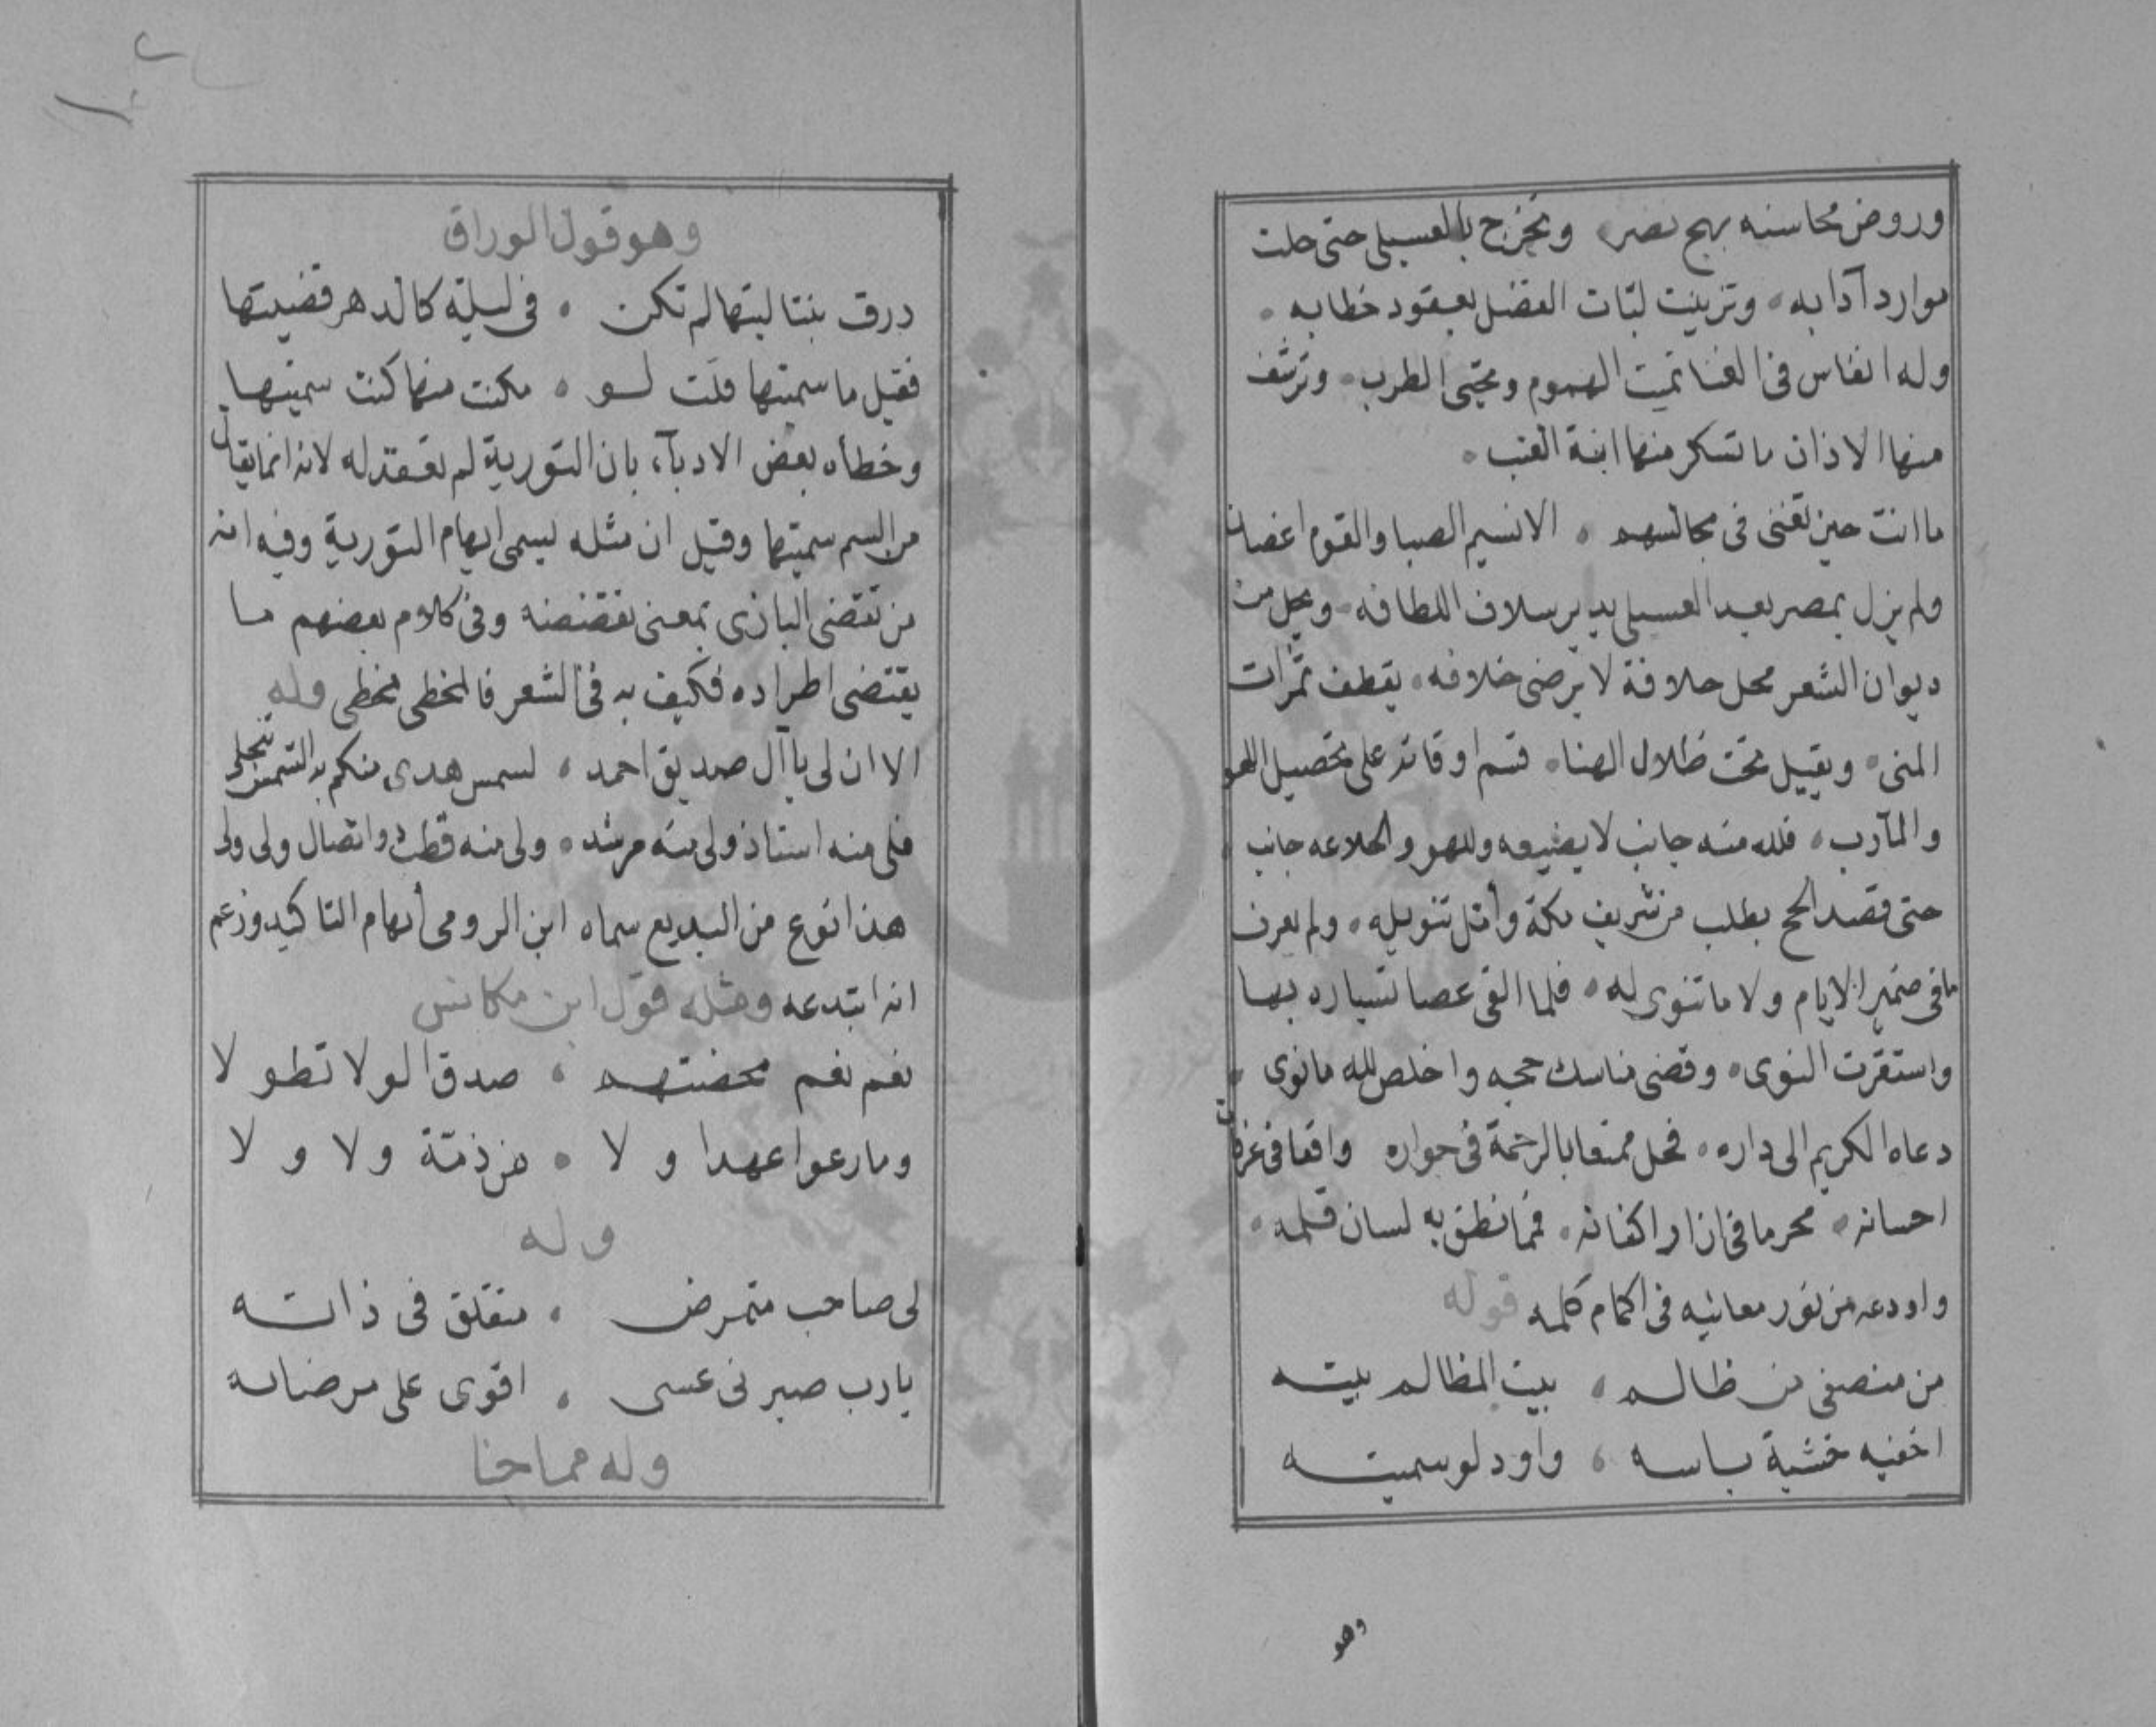 وروض محاسنه بهج نضر وتخرج بالعسيلى حتى حلت
موارد آدابه وتزينت لبات الفضل بعقود خطابه
وله انفاس فى الغنا تميت الهموم وتحيى الطرب وترشف
منها الاذان ما تسكر منها ابنة العنب
ما انت حين تغنى فى مجالسهم الا نسيم الصبا والقوم اغصان
ولم يزل بمصر بعد العسيلى يدير سلاف اللطافه ويحل من
ديوان الشعر محل خلافة لا يرضى خلافه يقطف ثمرات
المنى ويقيل تحت ظلال الهنا قسم اوقاته على تحصيل اللهو
والمآرب فلله منه جانب لا يضيعه وللهو والخلاعه جانب
حتى قصد الحج بطلب من شريف مكة وأمل تنويله ولم يعرف
ما فى ضمير الايام ولا ما تنوى له فلما القى عصا تسياره بها
واستقرت النوى وقضى مناسك حجه واخلص لله ما نوى
دعاه الكريم الى داره فحل ممتعا بالرحمة فى جواره واقفا فى عرفات
احسانه محرما فى ازار اكفانه فمما نطق به لسان قلمه
واودعه من نور معانيه فى اكمام كلمه قوله
من منصفى من ظالم بيت المظالم بيته
اخفيه خشية باسه واود لو سميته
وهو
وهو قول الوراق
درق بنتا ليتها لم تكن فى ليلة كالدهر قضيتها
فقيل ما سميتها قلت لو مكنت منها كنت سميتها
وخطأه بعض الادبآء بان التورية لم تعقد له لانه انما يقال
من السم سميتها وقيل ان مثله يسمى ايهام التورية وفيه انه
من تقضى البازى بمعنى تقضضه وفى كلام بعضهم ما
يقتضى اطراده فكيف به فى الشعر فالمخطى مخطى وله
الا ان لى يا آل صديق احمد لشمس هدى منكم بدالشمس تنجلى
فلى منه استاذ ولى منه مرشد ولى منه قطب ذو اتصال ولى ولى
هذا نوع من البديع سماه ابن الرومى أيهام التاكيد وزعم
انه ابتدعه ومثله قول ابن مكانس
نعم نعم محضتهم صدق الولا تطولا
وما رعوا عهدا ولا من ذمة ولا ولا
وله
لى صاحب متمرض متقلق فى ذاته
يا رب صبرنى عسى اقوى على مرضاته
وله مماجنا